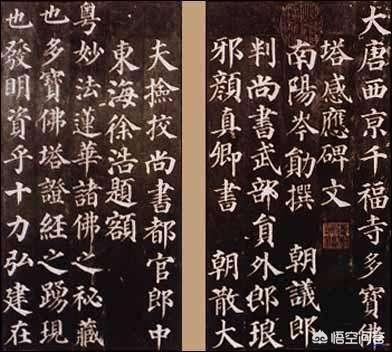 大唐西京千福寺多寶佛
塔感應碑文
南陽岑勛撰 朝議郎
判尚書武部貟外郎琅
邪顏真卿書 朝散大
夫撿挍尚書都官郎中
東海徐浩題額
粵妙法蓮華諸佛之秘藏
也多寶佛塔證經之踴現
也發明資乎十力弘建在
悟空问答